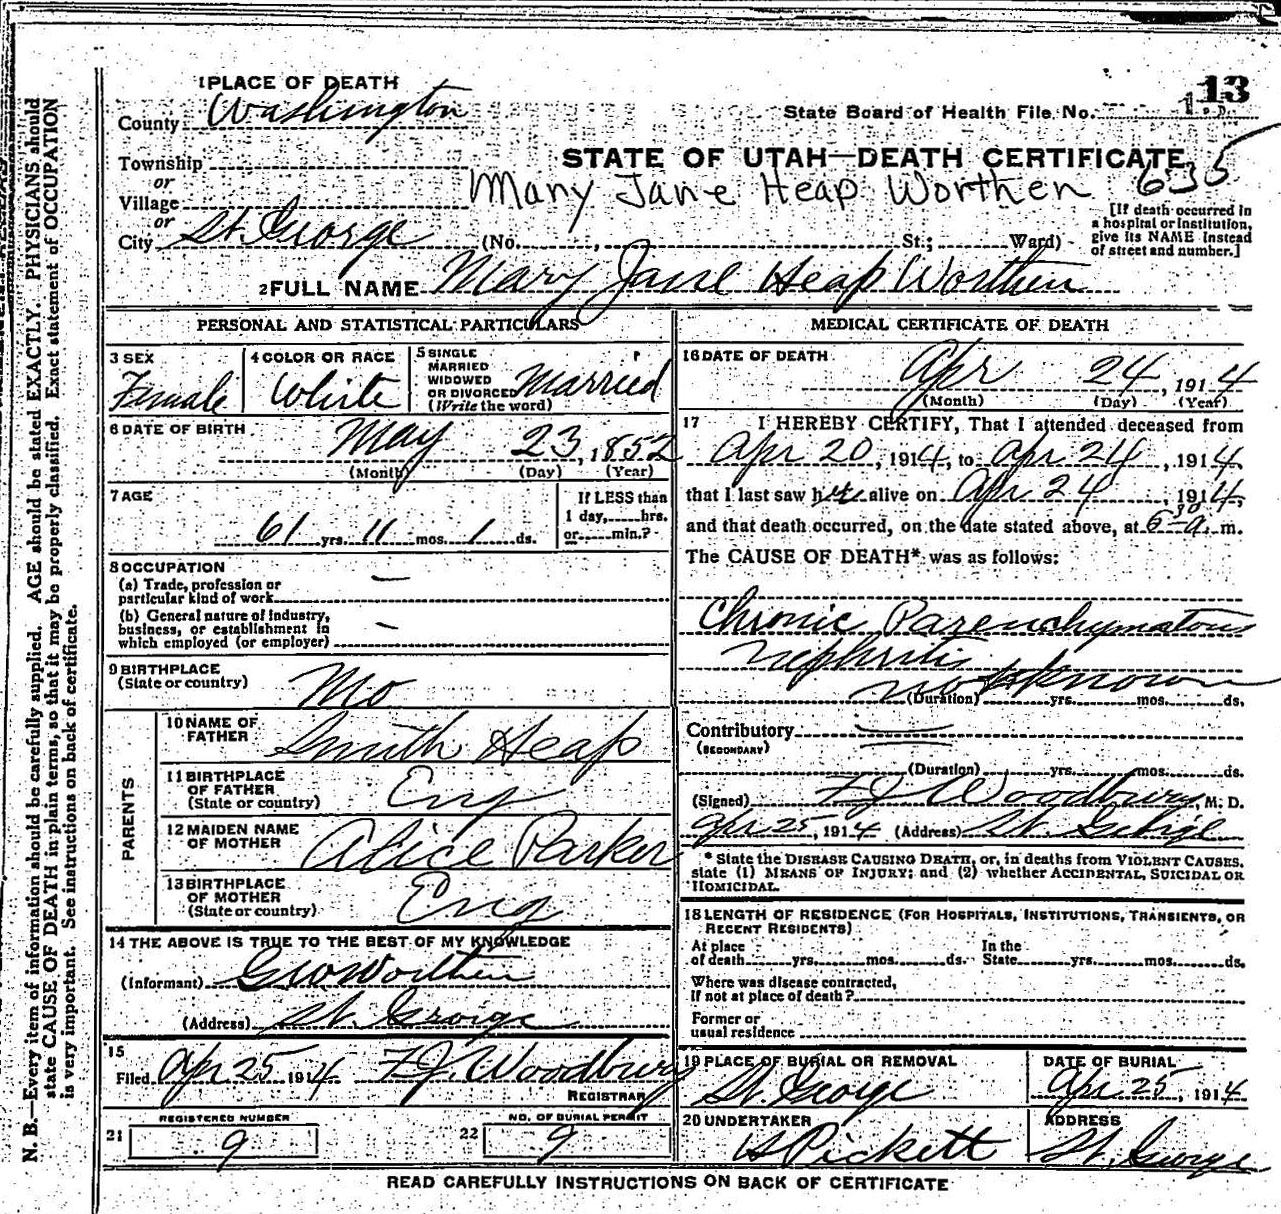 1 PLACE OF DEATH
County Washington
Township
or
Village
or
City St. George (No. , St.; Ward)
State Board of Health File No. 13
STATE OF UTAH—DEATH CERTIFICATE
Mary Jane Heap Worthen 635
[If death occurred in
a hospital or institution,
give its NAME instead
of street and number.]
2 FULL NAME Mary Jane Heap Worthen
PERSONAL AND STATISTICAL PARTICULARS
3 SEX
Female
4 COLOR OR RACE
White
5 SINGLE
MARRIED
WIDOWED
OR DIVORCED
(Write the word)
Married
6 DATE OF BIRTH
May 23, 1852
(Month) (Day) (Year)
7 AGE
61 yrs. 11 mos. 1 ds.
If LESS than
1 day, hrs.
or min.?
8 OCCUPATION
(a) Trade, profession or
particular kind of work —
(b) General nature of industry,
business, or establishment in
which employed (or employer) —
9 BIRTHPLACE
(State or country)
Mo
PARENTS
10 NAME OF
FATHER
Smith Heap
11 BIRTHPLACE
OF FATHER
(State or country)
Eng
12 MAIDEN NAME
OF MOTHER
Alice Parker
13 BIRTHPLACE
OF MOTHER
(State or country)
Eng
14 THE ABOVE IS TRUE TO THE BEST OF MY KNOWLEDGE
(Informant) Geo Worthen
(Address) St. George
15
Filed Apr 25 1914 F.J. Woodbury
REGISTRAR
REGISTERED NUMBER
21 9
NO. OF BURIAL PERMIT
22 9
MEDICAL CERTIFICATE OF DEATH
16 DATE OF DEATH
Apr 24, 1914
(Month) (Day) (Year)
17 I HEREBY CERTIFY, That I attended deceased from
Apr 20, 1914, to Apr 24, 1914,
that I last saw her alive on Apr 24, 1914,
and that death occurred, on the date stated above, at 6 30 a. m.
The CAUSE OF DEATH* was as follows:
Chronic Parenchymatous
Nephritis
not known
(Duration) yrs. mos. ds.
Contributory
(SECONDARY)
(Duration) yrs. mos. ds.
(Signed) F.J. Woodbury, M. D.
Apr 25, 1914 (Address) St. George
* State the DISEASE CAUSING DEATH, or, in deaths from VIOLENT CAUSES,
state (1) MEANS OF INJURY; and (2) whether ACCIDENTAL, SUICIDAL OR
HOMICIDAL.
18 LENGTH OF RESIDENCE (FOR HOSPITALS, INSTITUTIONS, TRANSIENTS, OR
RECENT RESIDENTS)
At place
of death yrs. mos. ds.
In the
State yrs. mos. ds.
Where was disease contracted,
if not at place of death?
Former or
usual residence
19 PLACE OF BURIAL OR REMOVAL
St. George
DATE OF BURIAL
Apr 25, 1914
20 UNDERTAKER
Pickett
ADDRESS
St. George
READ CAREFULLY INSTRUCTIONS ON BACK OF CERTIFICATE
N. B.—Every item of information should be carefully supplied. AGE should be stated EXACTLY. PHYSICIANS should
state CAUSE OF DEATH in plain terms, so that it may be properly classified. Exact statement of OCCUPATION
is very important. See instructions on back of certificate.